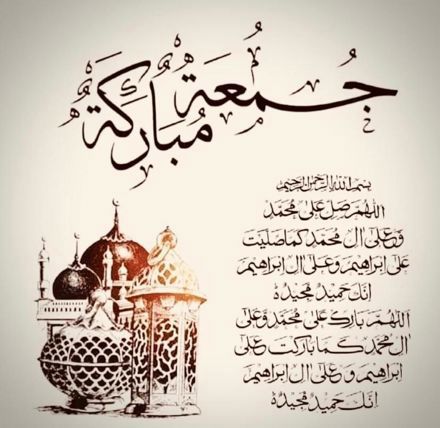 جُمُعَة
مُبَارَكَة
بسم الله الرحمن الرحيم
اللهم صل على محمد
وعلى ال محمد كما صليت
على ابراهيم وعلى ال ابراهيم
انك حميد مجيد
اللهم بارك على محمد وعلى
ال محمد كما باركت وعلى
ابراهيم وعلى ال ابراهيم
انك حميد مجيد